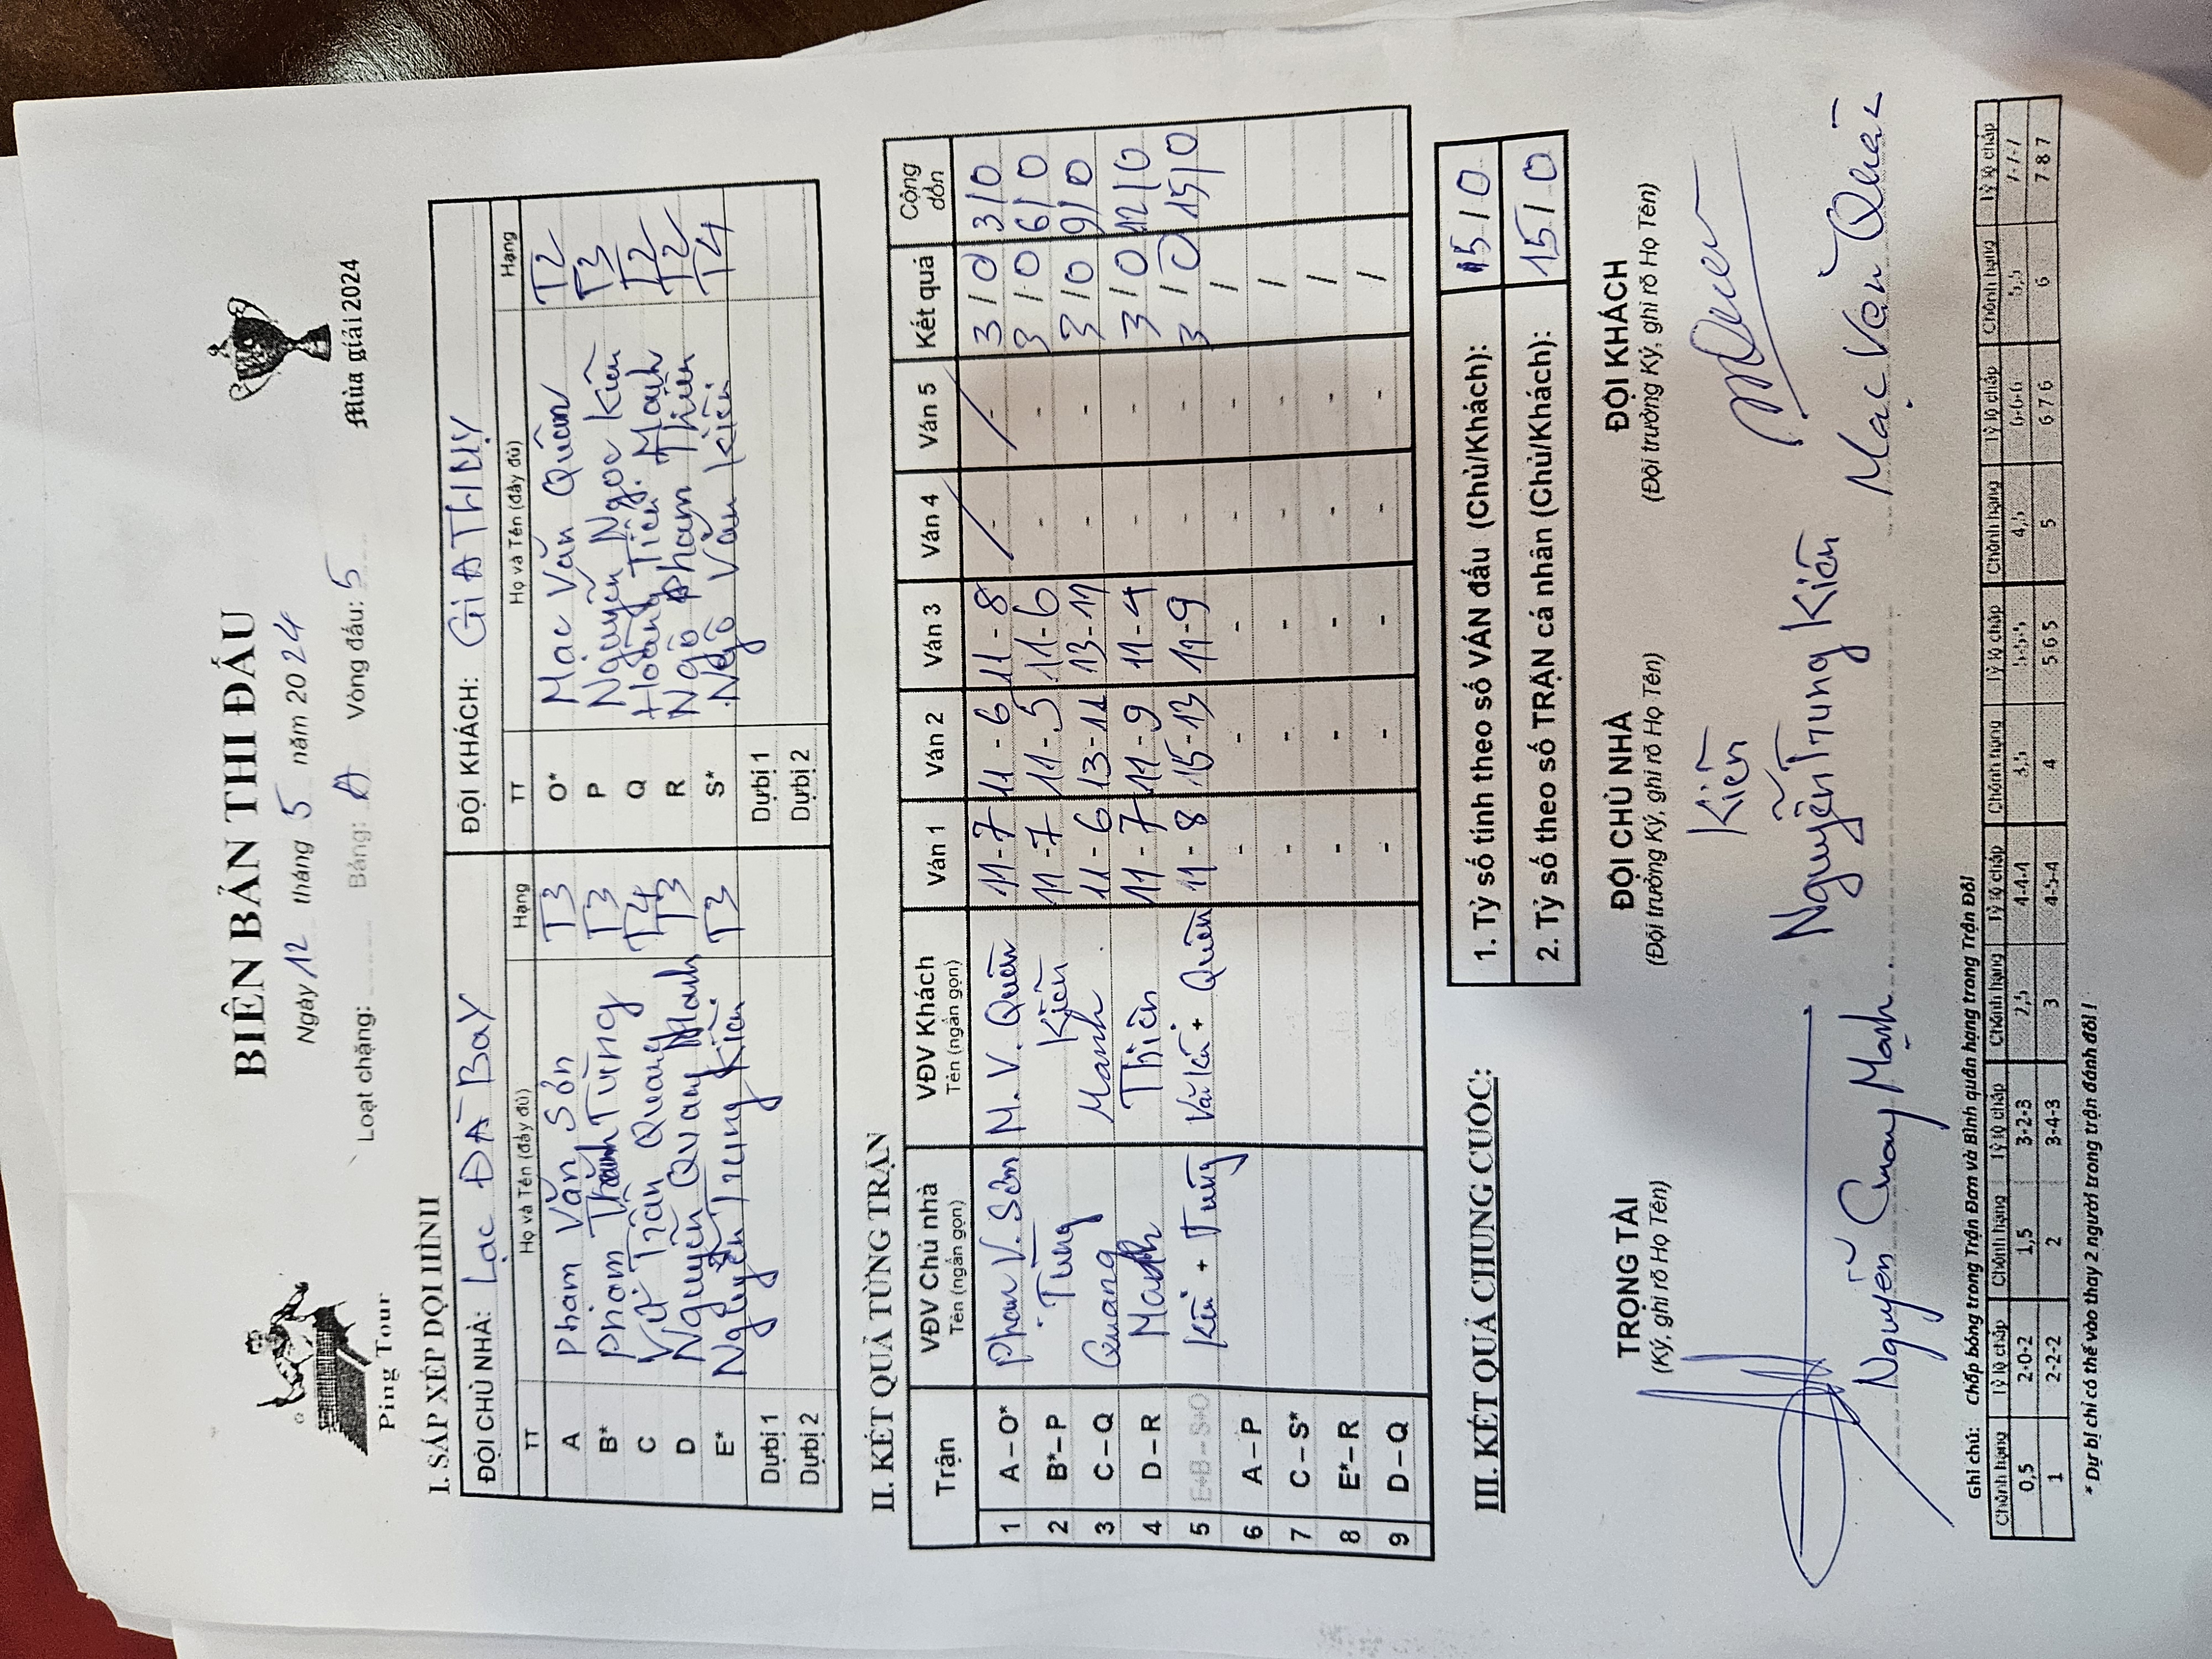 BIÊN BẢN THI ĐẤU
Ngày 12 tháng 5 năm 2024
Ping Tour
Mùa giải 2024
Loạt chặng: Bảng: A Vòng đấu: 5
I. SẮP XẾP ĐỘI HÌNH
ĐỘI CHỦ NHÀ: Lạc ĐÀ BaY ĐỘI KHÁCH: GiA THỤY
TT Họ và Tên (đầy đủ) Hạng TT Họ và Tên (đầy đủ) Hạng
A Phạm Văn Sơn T3 O* Mạc Văn Quân T2
B* Phạm Thanh Tùng T3 P Nguyễn Ngọc Kiên T3
C Trần Quang T4 Q Hoàng Tiến Mạnh T2
D Nguyễn Quang Mạnh T3 R Ngô Phạm Thiên T2
E* Nguyễn Trung Kiên T3 S* Ngô Văn Kiên T4
Dự bị 1 Dự bị 1
Dự bị 2 Dự bị 2
II. KẾT QUẢ TỪNG TRẬN
Trận VĐV Chủ nhà VĐV Khách Ván 1 Ván 2 Ván 3 Ván 4 Ván 5 Kết quả Cộng dồn
Tên (ngắn gọn) Tên (ngắn gọn)
1 A – O* Phạm V. Sơn M. V. Quân 11-7 11-6 11-8 - - 3/0 3/0
2 B* – P Tùng Kiên 11-7 11-5 11-6 - - 3/0 6/0
3 C – Q Quang Mạnh 11-6 13-11 13-11 - - 3/0 9/0
4 D – R Mạnh Thiên 11-7 11-9 11-4 - - 3/0 12/0
5 E+B – S+O Kiên + Tùng Kiên + Quân 11-8 15-13 11-9 - - 3/0 15/0
6 A – P - - - - - /
7 C – S* - - - - - /
8 E* – R - - - - - /
9 D – Q - - - - - /
III. KẾT QUẢ CHUNG CUỘC:
1. Tỷ số tính theo số VÁN đấu (Chủ/Khách): 15/0
2. Tỷ số theo số TRẬN cá nhân (Chủ/Khách): 15/0
TRỌNG TÀI ĐỘI CHỦ NHÀ ĐỘI KHÁCH
(Ký, ghi rõ Họ Tên) (Đội trưởng Ký, ghi rõ Họ Tên) (Đội trưởng Ký, ghi rõ Họ Tên)
Kiên
Nguyễn Quang Mạnh Nguyễn Trung Kiên Mạc Văn Quân
Ghi chú: Chấp bóng trong Trận Đơn và Bình quân hạng trong Trận Đôi
Chênh hạng Tỷ lệ chấp Chênh hạng Tỷ lệ chấp Chênh hạng Tỷ lệ chấp Chênh hạng Tỷ lệ chấp Chênh hạng Tỷ lệ chấp Chênh hạng Tỷ lệ chấp
0,5 2-0-2 1,5 3-2-3 2,5 4-4-4 3,5 5-5-5 4,5 6-6-6 5,5 7-7-7
1 2-2-2 2 3-4-3 3 4-5-4 4 5 6 5 5 6 7 6 6 7 8 7
* Dự bị chỉ có thể vào thay 2 người trong trận đánh đôi !